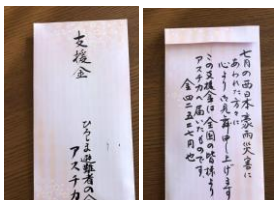 支援金
ひろしま避難者の
アスチカ
七月の西日本豪雨災害に
あわれた方々に
心よりお見舞申し上げます
この支援金は全国の皆様より
アスチカへ届いたものです